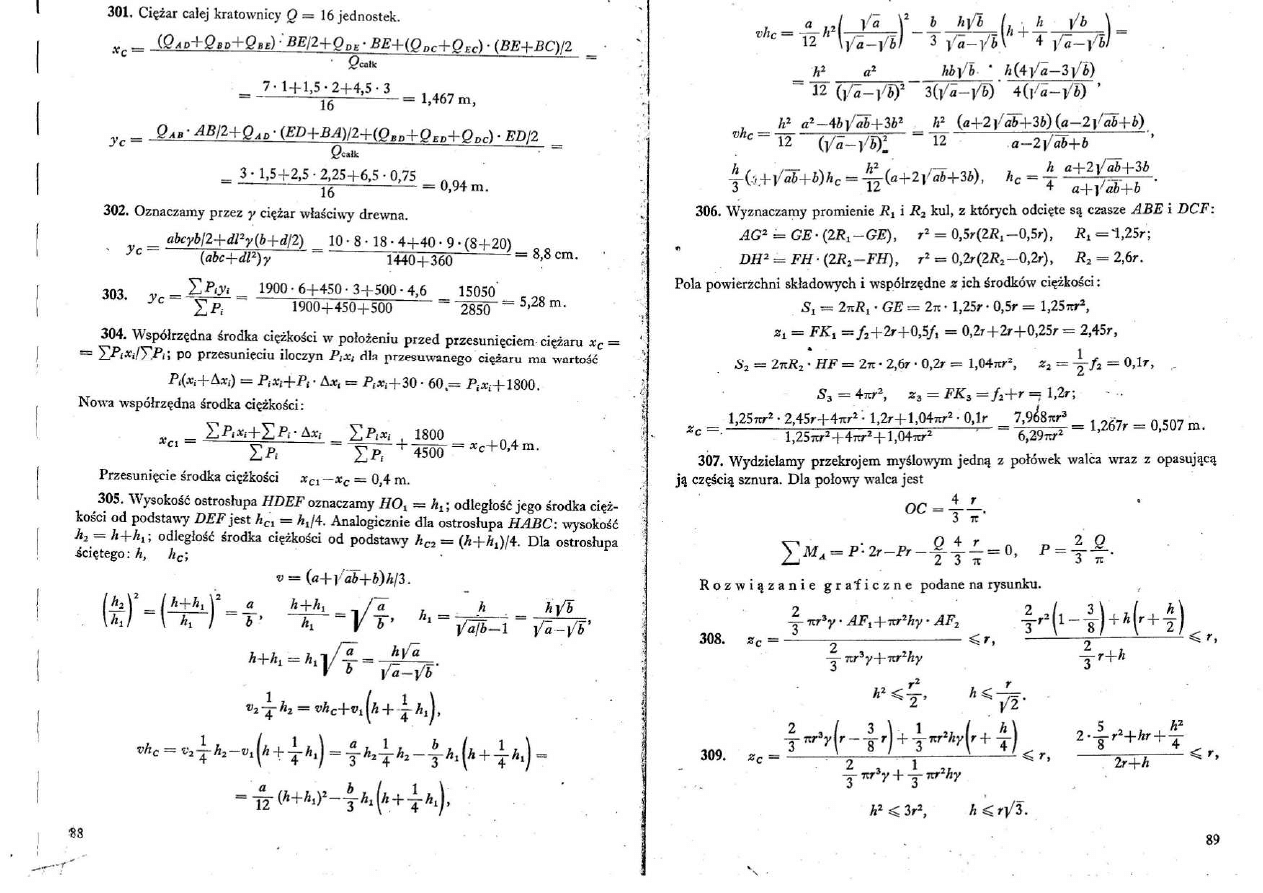 301. Ciężar całej kratownicy Q = 16 jednostek.
x_C = (Q_AD+Q_BD+Q_BE) · BE/2+Q_DE · BE+(Q_DC+Q_EC) · (BE+BC)/2 / Q_całk =
= 7 · 1+1,5 · 2+4,5 · 3 / 16 = 1,467 m,
y_C = Q_AB · AB/2+Q_AD · (ED+BA)/2+(Q_BD+Q_ED+Q_DC) · ED/2 / Q_całk =
= 3 · 1,5+2,5 · 2,25+6,5 · 0,75 / 16 = 0,94 m.
302. Oznaczamy przez γ ciężar właściwy drewna.
y_C = abcγb/2+dl²γ(b+d/2) / (abc+dl²)γ = 10 · 8 · 18 · 4+40 · 9 · (8+20) / 1440+360 = 8,8 cm.
303. y_C = ∑P_iy_i / ∑P_i = 1900 · 6+450 · 3+500 · 4,6 / 1900+450+500 = 15050 / 2850 = 5,28 m.
304. Współrzędna środka ciężkości w położeniu przed przesunięciem ciężaru x_C =
= ∑P_ix_i/∑P_i; po przesunieciu iloczyn P_ix_i dla przesuwanego ciężaru ma wartość
P_i(x_i+Δx_i) = P_ix_i+P_i · Δx_i = P_ix_i+30 · 60 = P_ix_i+1800.
Nowa współrzędna środka ciężkości:
x_C1 = ∑P_ix_i+∑P_i · Δx_i / ∑P_i = ∑P_ix_i / ∑P_i + 1800 / 4500 = x_C+0,4 m.
Przesunięcie środka ciężkości x_C1−x_C = 0,4 m.
305. Wysokość ostrosłupa HDEF oznaczamy HO₁ = h₁; odległość jego środka cięż-
kości od podstawy DEF jest h_C1 = h₁/4. Analogicznie dla ostrosłupa HABC: wysokość
h₂ = h+h₁; odległość środka ciężkości od podstawy h_C2 = (h+h₁)/4. Dla ostrosłupa
ściętego: h, h_C;
v = (a+√ab+b)h/3.
(h₂/h₁)² = ((h+h₁)/h₁)² = a/b, (h+h₁)/h₁ = √(a/b), h₁ = h/(√(a/b)−1) = h√b/(√a−√b),
h+h₁ = h₁√(a/b) = h√a/(√a−√b).
v₂ 1/4 h₂ = vh_C+v₁(h+ 1/4 h₁),
vh_C = v₂ 1/4 h₂−v₁(h+ 1/4 h₁) = a/3 h₂ 1/4 h₂− b/3 h₁(h+ 1/4 h₁) =
= a/12 (h+h₁)²− b/3 h₁(h+ 1/4 h₁),
88
vh_C = a/12 h²(√a/(√a−√b))² − b/3 h√b/(√a−√b) (h + h/4 √b/(√a−√b))
= h²/12 a²/(√a−√b)² − hb√b/3(√a−√b) · h(4√a−3√b)/4(√a−√b),
vh_C = h²/12 (a²−4b√ab+3b²)/(√a−√b)² = h²/12 (a+2√ab+3b)(a−2√ab+b)/(a−2√ab+b),
h/3 (a+√ab+b)h_C = h²/12 (a+2√ab+3b), h_C = h/4 (a+2√ab+3b)/(a+√ab+b).
306. Wyznaczamy promienie R₁ i R₂ kul, z których odcięte są czasze ABE i DCF:
AG² = GE · (2R₁−GE), r² = 0,5r(2R₁−0,5r), R₁ = 1,25r;
DH² = FH · (2R₂−FH), r² = 0,2r(2R₂−0,2r), R₂ = 2,6r.
Pola powierzchni składowych i współrzędne z ich środków ciężkości:
S₁ = 2πR₁ · GE = 2π · 1,25r · 0,5r = 1,25πr²,
z₁ = FK₁ = f₂+2r+0,5f₁ = 0,2r+2r+0,25r = 2,45r,
S₂ = 2πR₂ · HF = 2π · 2,6r · 0,2r = 1,04πr², z₂ = 1/2 f₂ = 0,1r,
S₃ = 4πr², z₃ = FK₃ = f₂+r = 1,2r;
z_C = 1,25πr² · 2,45r+4πr² · 1,2r+1,04πr² · 0,1r / 1,25πr²+4πr²+1,04πr² = 7,968πr³ / 6,29πr² = 1,267r = 0,507 m.
307. Wydzielamy przekrojem myślowym jedną z połówek walca wraz z opasującą
ją częścią sznura. Dla połowy walca jest
OC = 4/3 r/π.
∑M_A = P · 2r−Pr− Q/2 4/3 r/π = 0, P = 2/3 Q/π.
Rozwiązanie graficzne podane na rysunku.
308. z_C = (2/3 πr³γ · AF₁+πr²hγ · AF₂) / (2/3 πr³γ+πr²hγ) ⩽ r, (2/3 r²(1− 3/8)+h(r+ h/2)) / (2/3 r+h) ⩽ r,
h² ⩽ r²/2, h ⩽ r/√2.
309. z_C = (2/3 πr³γ(r− 3/8 r)+ 1/3 πr²hγ(r+ h/4)) / (2/3 πr³γ+ 1/3 πr²hγ) ⩽ r, (2 · 5/8 r²+hr+ h²/4) / (2r+h) ⩽ r,
h² ⩽ 3r², h ⩽ r√3.
89